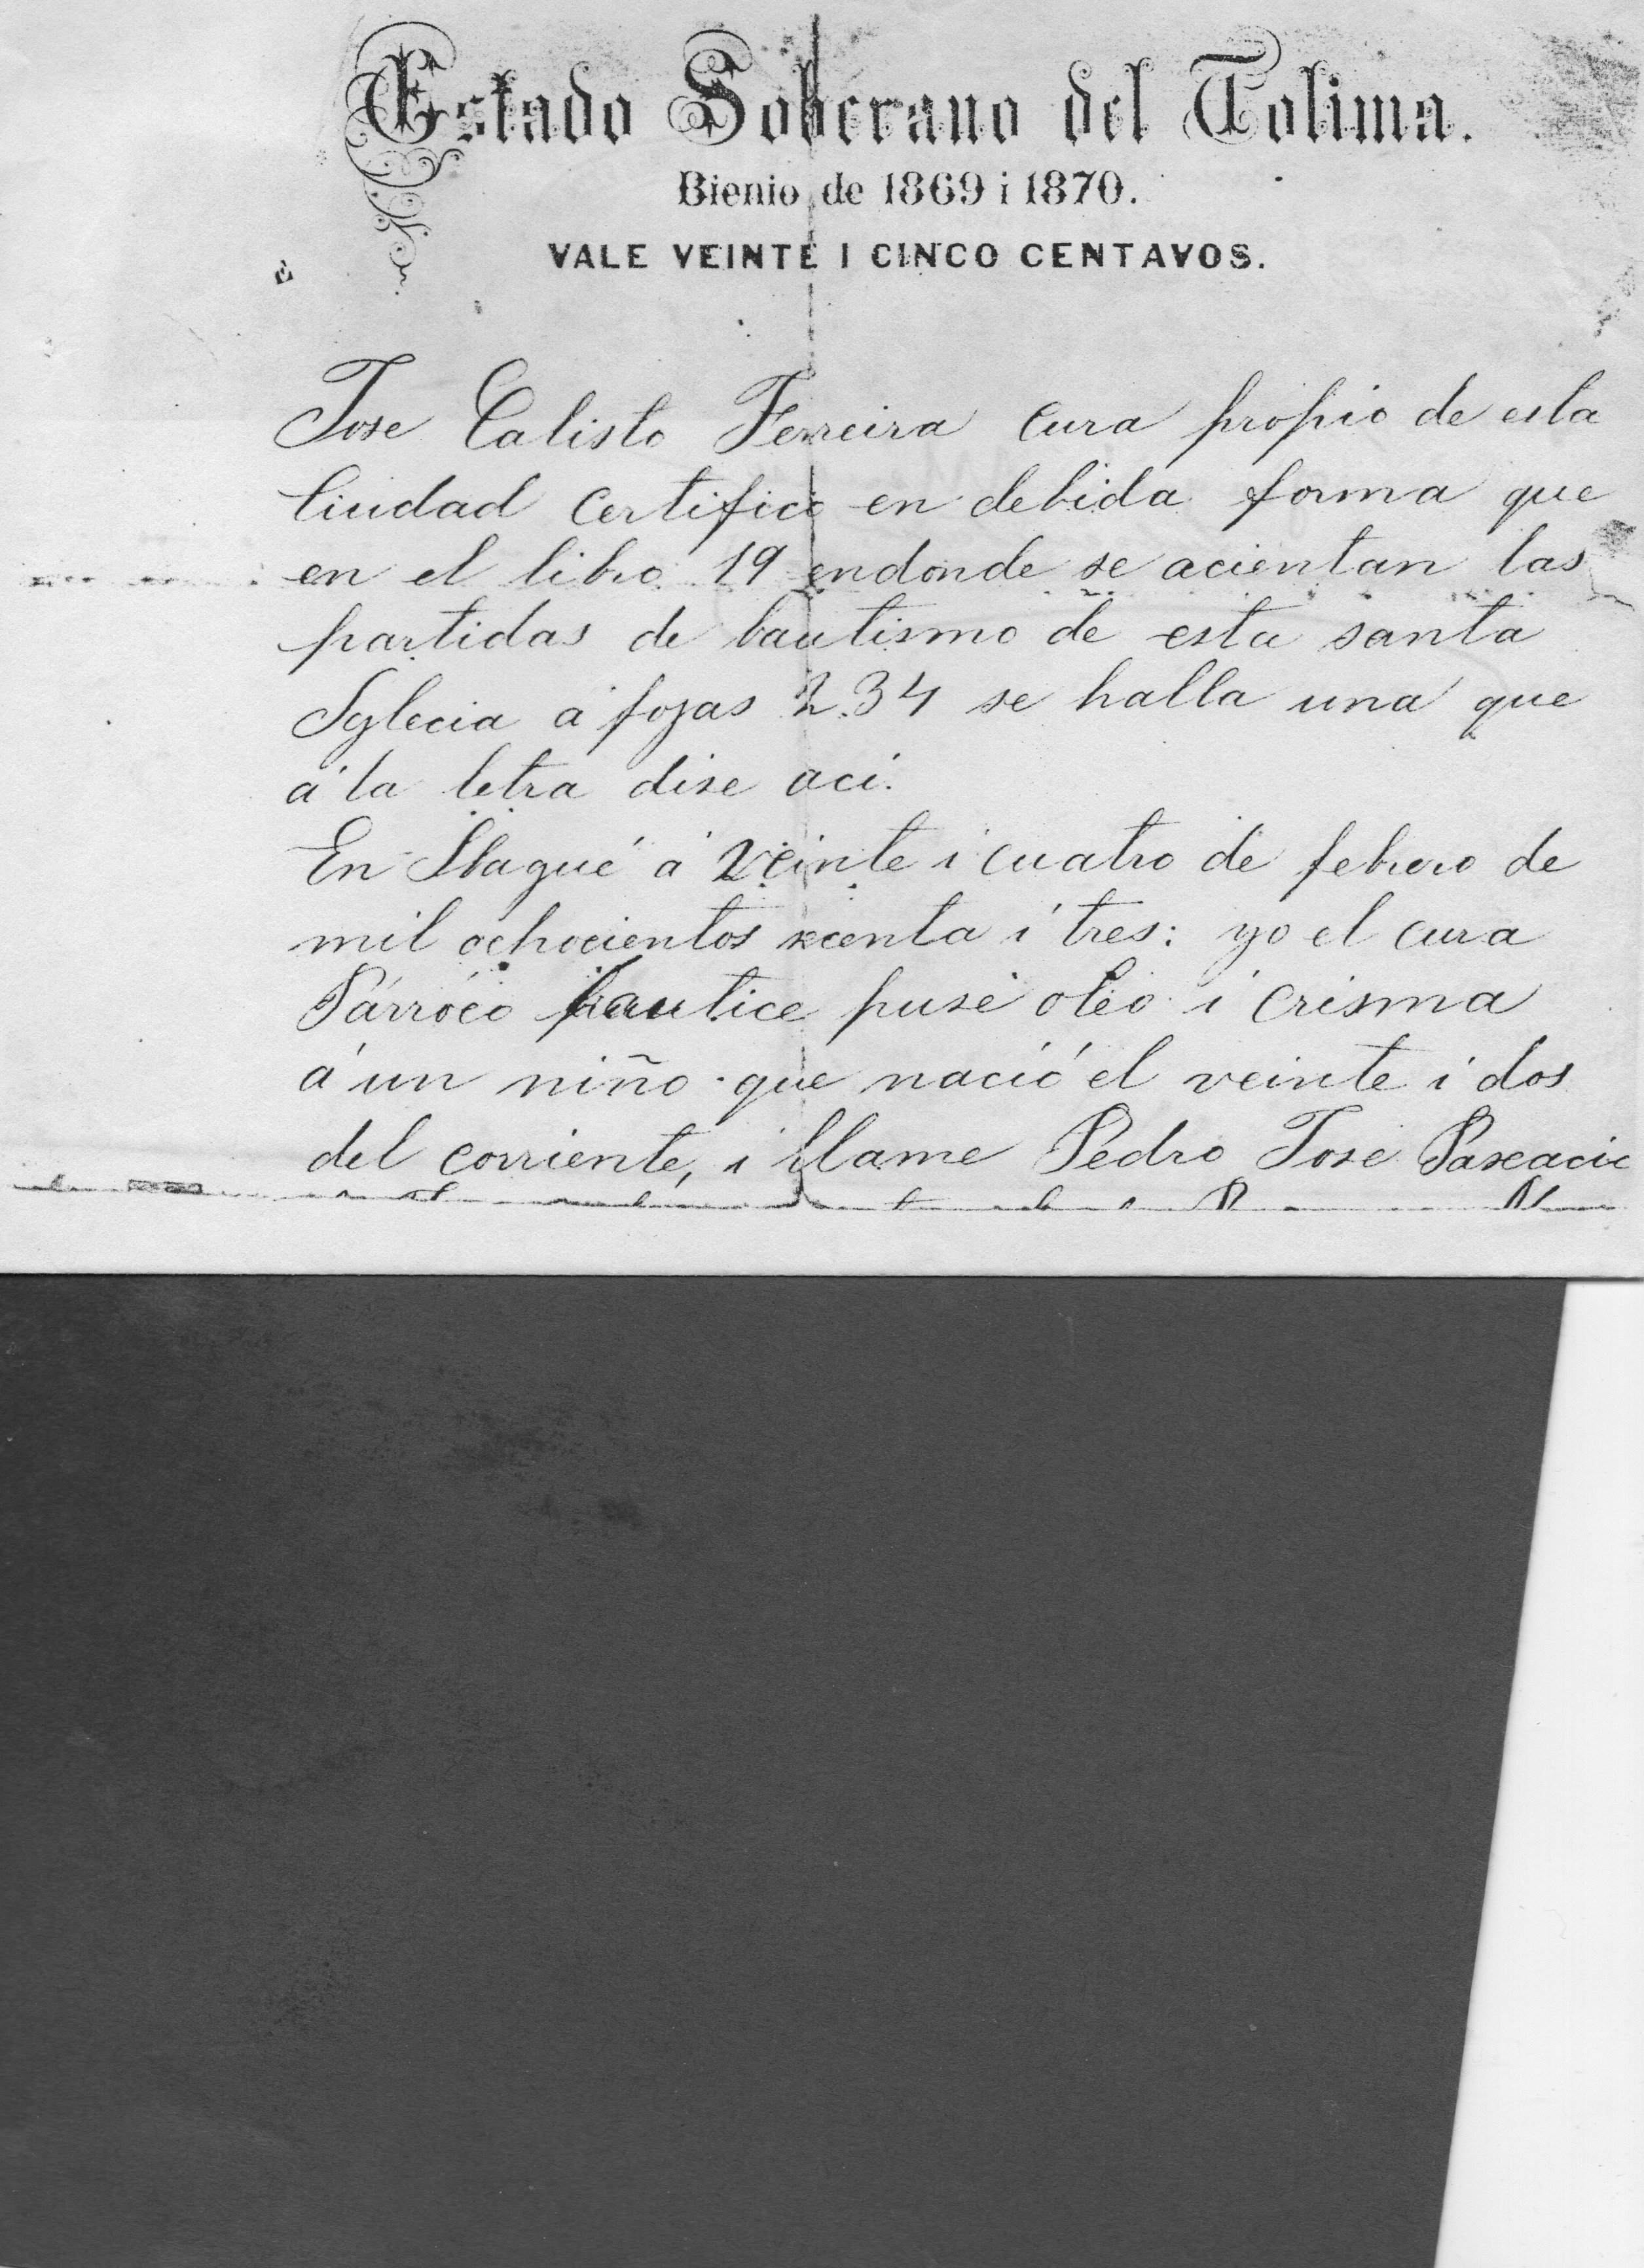 Estado Soberano del Tolima.
Bienio de 1869 i 1870.
VALE VEINTE I CINCO CENTAVOS.
Jose Calisto Ferreira cura propio de esta
Ciudad certifico en debida forma que
en el libro 19 endonde se acientan las
partidas de bautismo de esta santa
Iglecia á fojas 234 se halla una que
á la letra dise aci.
En Ibagué á veinte i cuatro de febrero de
mil ochocientos secenta i tres: yo el cura
Párroco bautice puse oleo i crisma
á un niño que nació el veinte i dos
del corriente, i llame Pedro Jose Pascacio